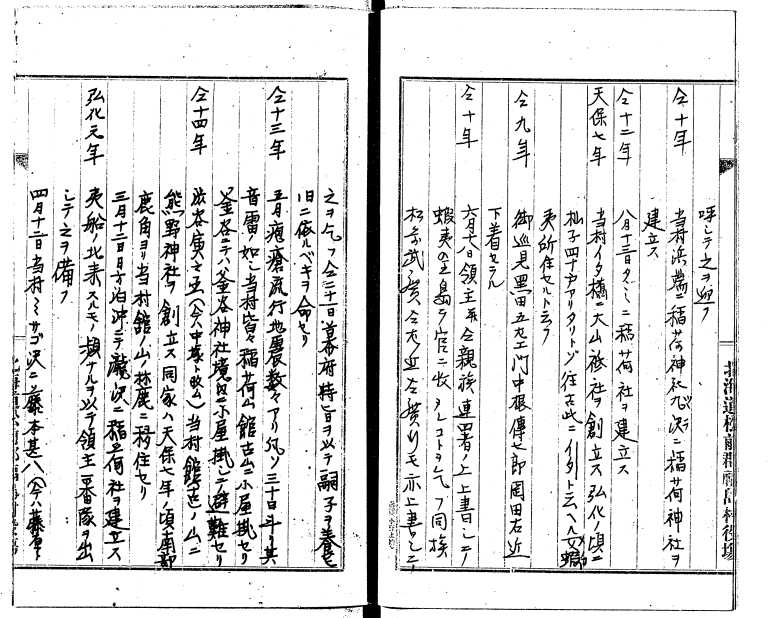 呼シテ之ヲ迎フ
仝十年
当村浜端ニ稲荷神社 沢ニ稲荷神社ヲ
建立ス
仝十二年
八月十三日 ニ稲荷社ヲ建立ス
天保七年
当村イタ橋ニ大山祗社ヲ創立ス弘化ノ頃ニ
杣子四十戸アリタリトゾ往古此ニイタト云ヘル女蝦
夷所住セルト云フ
仝九年
御巡見黒田五左エ門中根傳七郎岡田右近
下着セラル
仝十年
六月六日領主 仝親族連署ノ上上書シテ
蝦夷の全島ヲ官ニ收 ヲレコトヲ乞フ同族
松前武廣 仝右近仝廣 モ亦上書シテ
之ヲ乞フ仝二十一日幕府特旨ヲ以テ嗣子ヲ養セ
旧ニ依ルベキヲ命セリ
仝十三年
五月疱瘡流行地震数々アリ凡ソ三十日斗リ其
音雷ノ如シ当村皆々稲荷山館古山ニ小屋掛セリ
釜谷ニテハ釜谷神社境内ニ小屋掛シテ避難セリ
仝十四年
渋谷寅之丞(今中塚ト改ム)当村館古ノ山ニ
熊野神社ヲ創立ス同家ハ天保七年ノ頃南部
鹿角ヨリ当村館ノ山ノ 鹿ニ移住セリ
三月十二日 泊沖ニテ瀧沢ニ稲荷社ヲ建立ス
弘化元年
夷船ノ北来スルモノ頻ナルヲ以テ領主一番隊ヲ出
シテ之ヲ備フ
四月十二日当村ミサゴ沢ニ藤本甚八(今ハ藤
北海道松前郡福島村役場